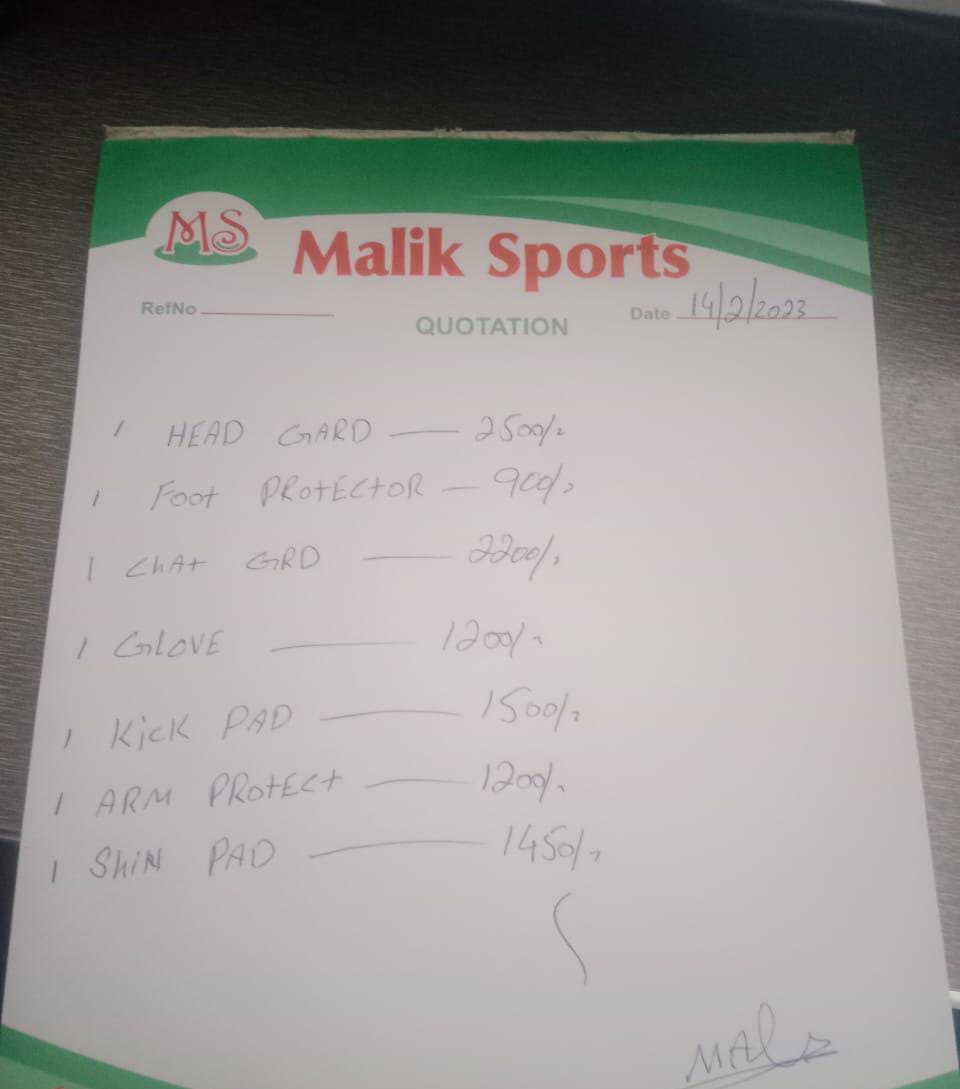 MS
Malik Sports
RefNo
Date 14/2/2023
QUOTATION
1 HEAD GARD — 2500/-
1 Foot PROtECtOR — 900/-
1 ChAt GRD — 2200/-
1 GLOVE — 1200/-
1 KicK PAD — 1500/-
1 ARM PROtECt — 1200/-
1 ShiN PAD — 1450/-